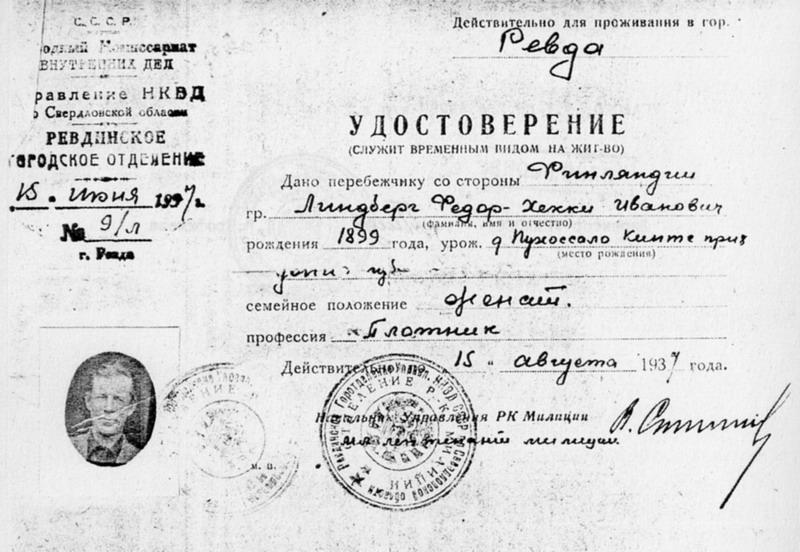 С. С. С. Р.
одный Комиссариат
ВНУТРЕННИХ ДЕЛ
равление НКВД
о Свердловской области
РЕВДИНСКОЕ
ГОРОДСКОЕ ОТДЕЛЕНИЕ
15. Июня 1937г.
№ 9/л
г. Ревда
Действительно для проживания в гор.
Ревда
УДОСТОВЕРЕНИЕ
(СЛУЖИТ ВРЕМЕННЫМ ВИДОМ НА ЖИТ-ВО)
Дано перебежчику со стороны Финляндии
гр. Линдберг Федор-Хекки Иванович
(фамилия, имя и отчество)
рождения 1899 года, урож. д Пухоссало Ките прих
(место рождения)
губ
семейное положение женат.
профессия Плотник
Действительно по 15 " августа 1937 года.
Начальник Управления РК Милиции
мл лейтенант милиции
м. п.